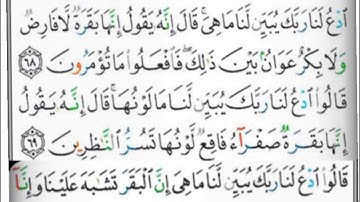 ٱدۡعُ لَنَا رَبَّكَ يُبَيِّن لَّنَا مَا هِىَۚ قَالَ إِنَّهُۥ يَقُولُ إِنَّهَا بَقَرَةٞ لَّا فَارِضٞ
وَلَا بِكۡرٌ عَوَانُۢ بَيۡنَ ذَٰلِكَۖ فَٱفۡعَلُواْ مَا تُؤۡمَرُونَ ٦٨
قَالُواْ ٱدۡعُ لَنَا رَبَّكَ يُبَيِّن لَّنَا مَا لَوۡنُهَاۚ قَالَ إِنَّهُۥ يَقُولُ
إِنَّهَا بَقَرَةٞ صَفۡرَآءُ فَاقِعٞ لَّوۡنُهَا تَسُرُّ ٱلنَّٰظِرِينَ ٦٩
قَالُواْ ٱدۡعُ لَنَا رَبَّكَ يُبَيِّن لَّنَا مَا هِىَ إِنَّ ٱلۡبَقَرَ تَشَٰبَهَ عَلَيۡنَا وَإِنَّآ